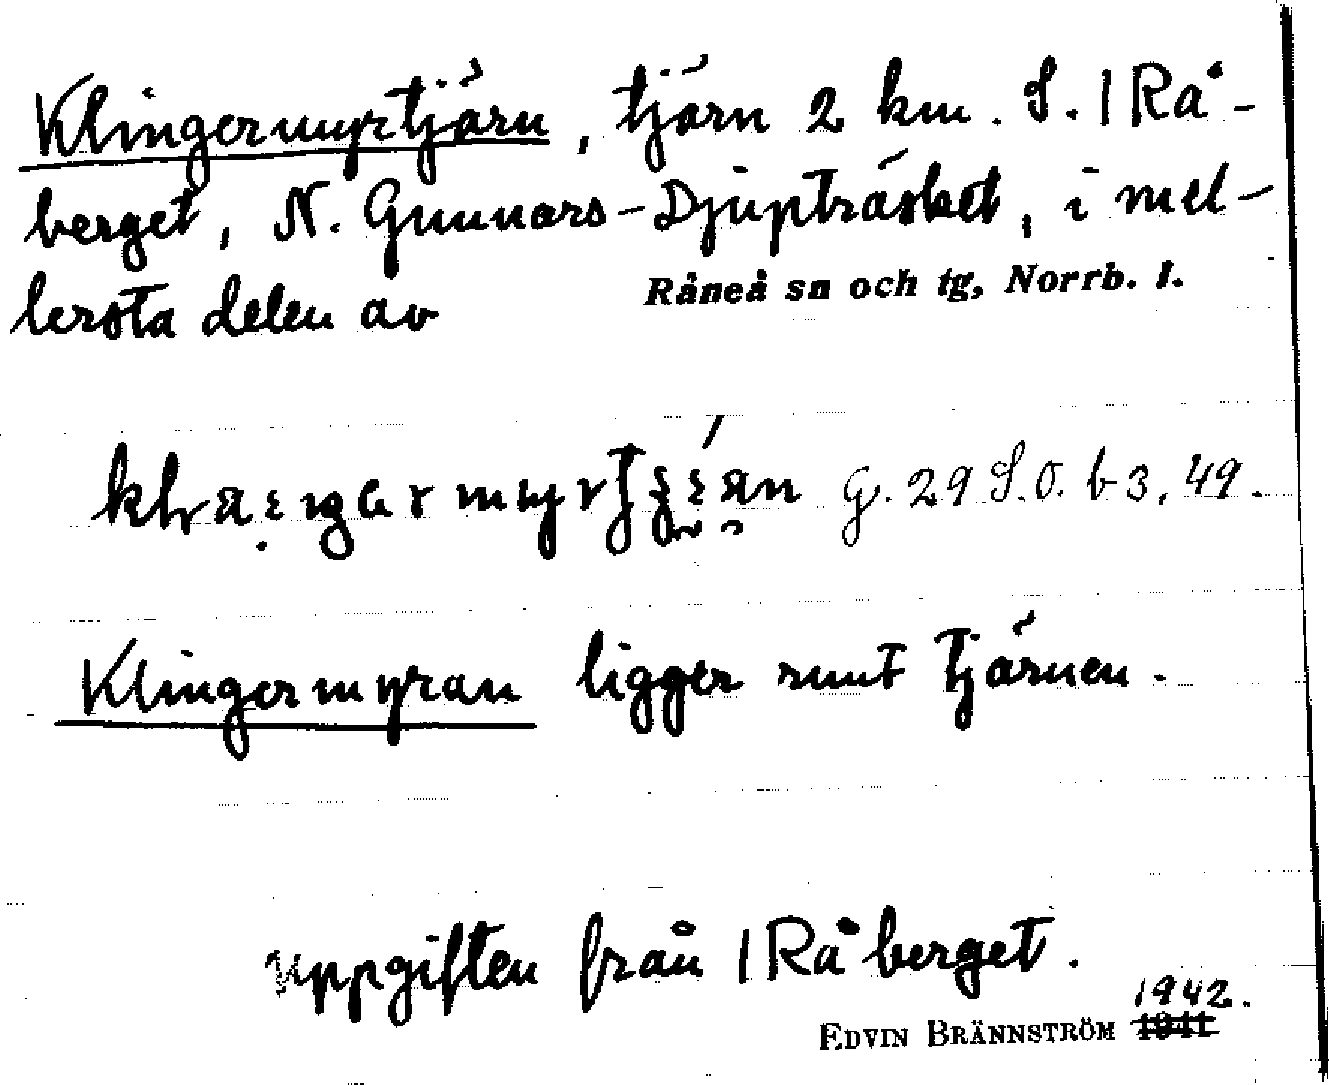 Klingermyrtjärn, tjärn 2 km. S. 1 Rå-
berget, N. Gunnars-Djupträsket, i mel-
lersta delen av
Råneå sn och tg, Norrb. l.
G. 29 S.O. b 3, 49.
Klingermyran ligger runt tjärnen.
uppgiften från 1 Råberget.
1942.
EDVIN BRÄNNSTRÖM 1941